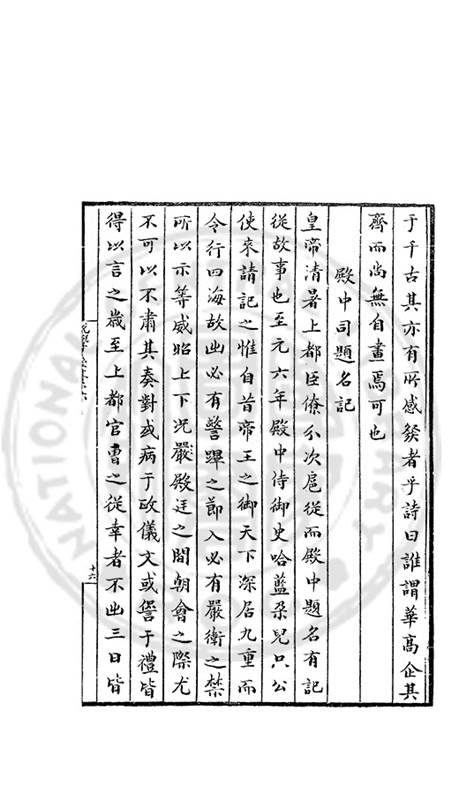 于千古其亦有所感發者乎詩曰誰謂華髙企其
齊而尚無自畫焉可也
殿中司題名記
皇帝清暑上都臣僚分次扈從而殿中題名有記
從故事也至元六年殿中侍御史哈藍朶兒只公
使來請記之惟自昔帝王之御天下深居九重而
令行四海故出必有警蹕之節入必有嚴衛之禁
所以示等威昭上下况嚴殿廷之間朝會之際尤
不可以不肅其奏對或病于政儀文或愆于禮皆
得以言之歲至上都官曹之從幸者不出三日皆
十六
NATIONAL